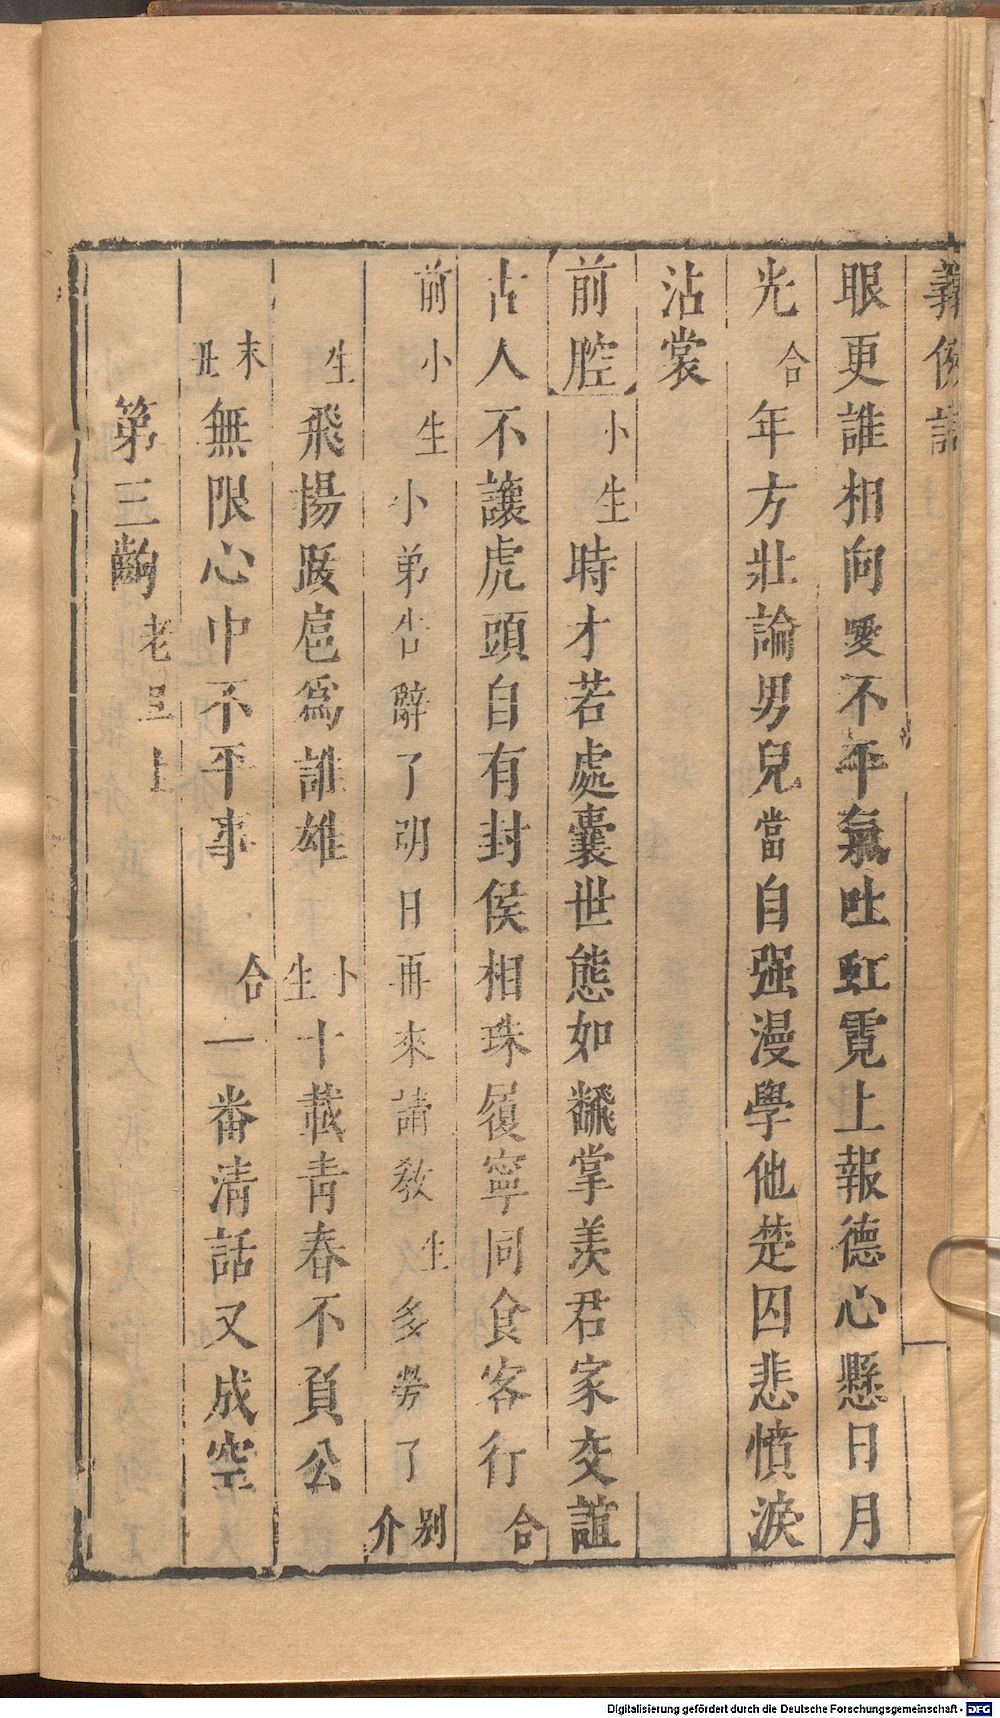 義俠記
眼更誰相向愛不年氣吐虹霓上報德心懸日月
光合年方壯論男兒當自强漫學他楚囚悲憤淚
沾裳
前腔小生時才若處囊世態如飜掌羨君家交誼
古人不讓虎頭自有封侯相珠履寧同食客行合
前小生小弟告辭了明日再來請教生多勞了别介
生飛揚跋扈爲誰雄小生十載青春不負公
末丑無限心中不平事合一番清話又成空
第三齣老旦上
Digitalisierung gefördert durch die Deutsche Forschungsgemeinschaft - DFG